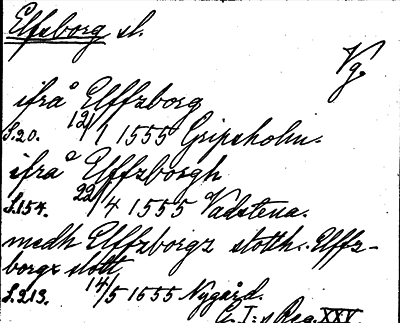 Elfsborg sl.
Vg.
ifrå Elffzborg
S.20. 12/1 1555 Gripsholm.
ifrå Elffzborgh
S.154. 22/4 1555 Vadstena.
medh Elffzborgz slotth. Elffz-
borgz slott
S.213. 14/5 1555 Nygård.
G. I:s Reg. XXV.